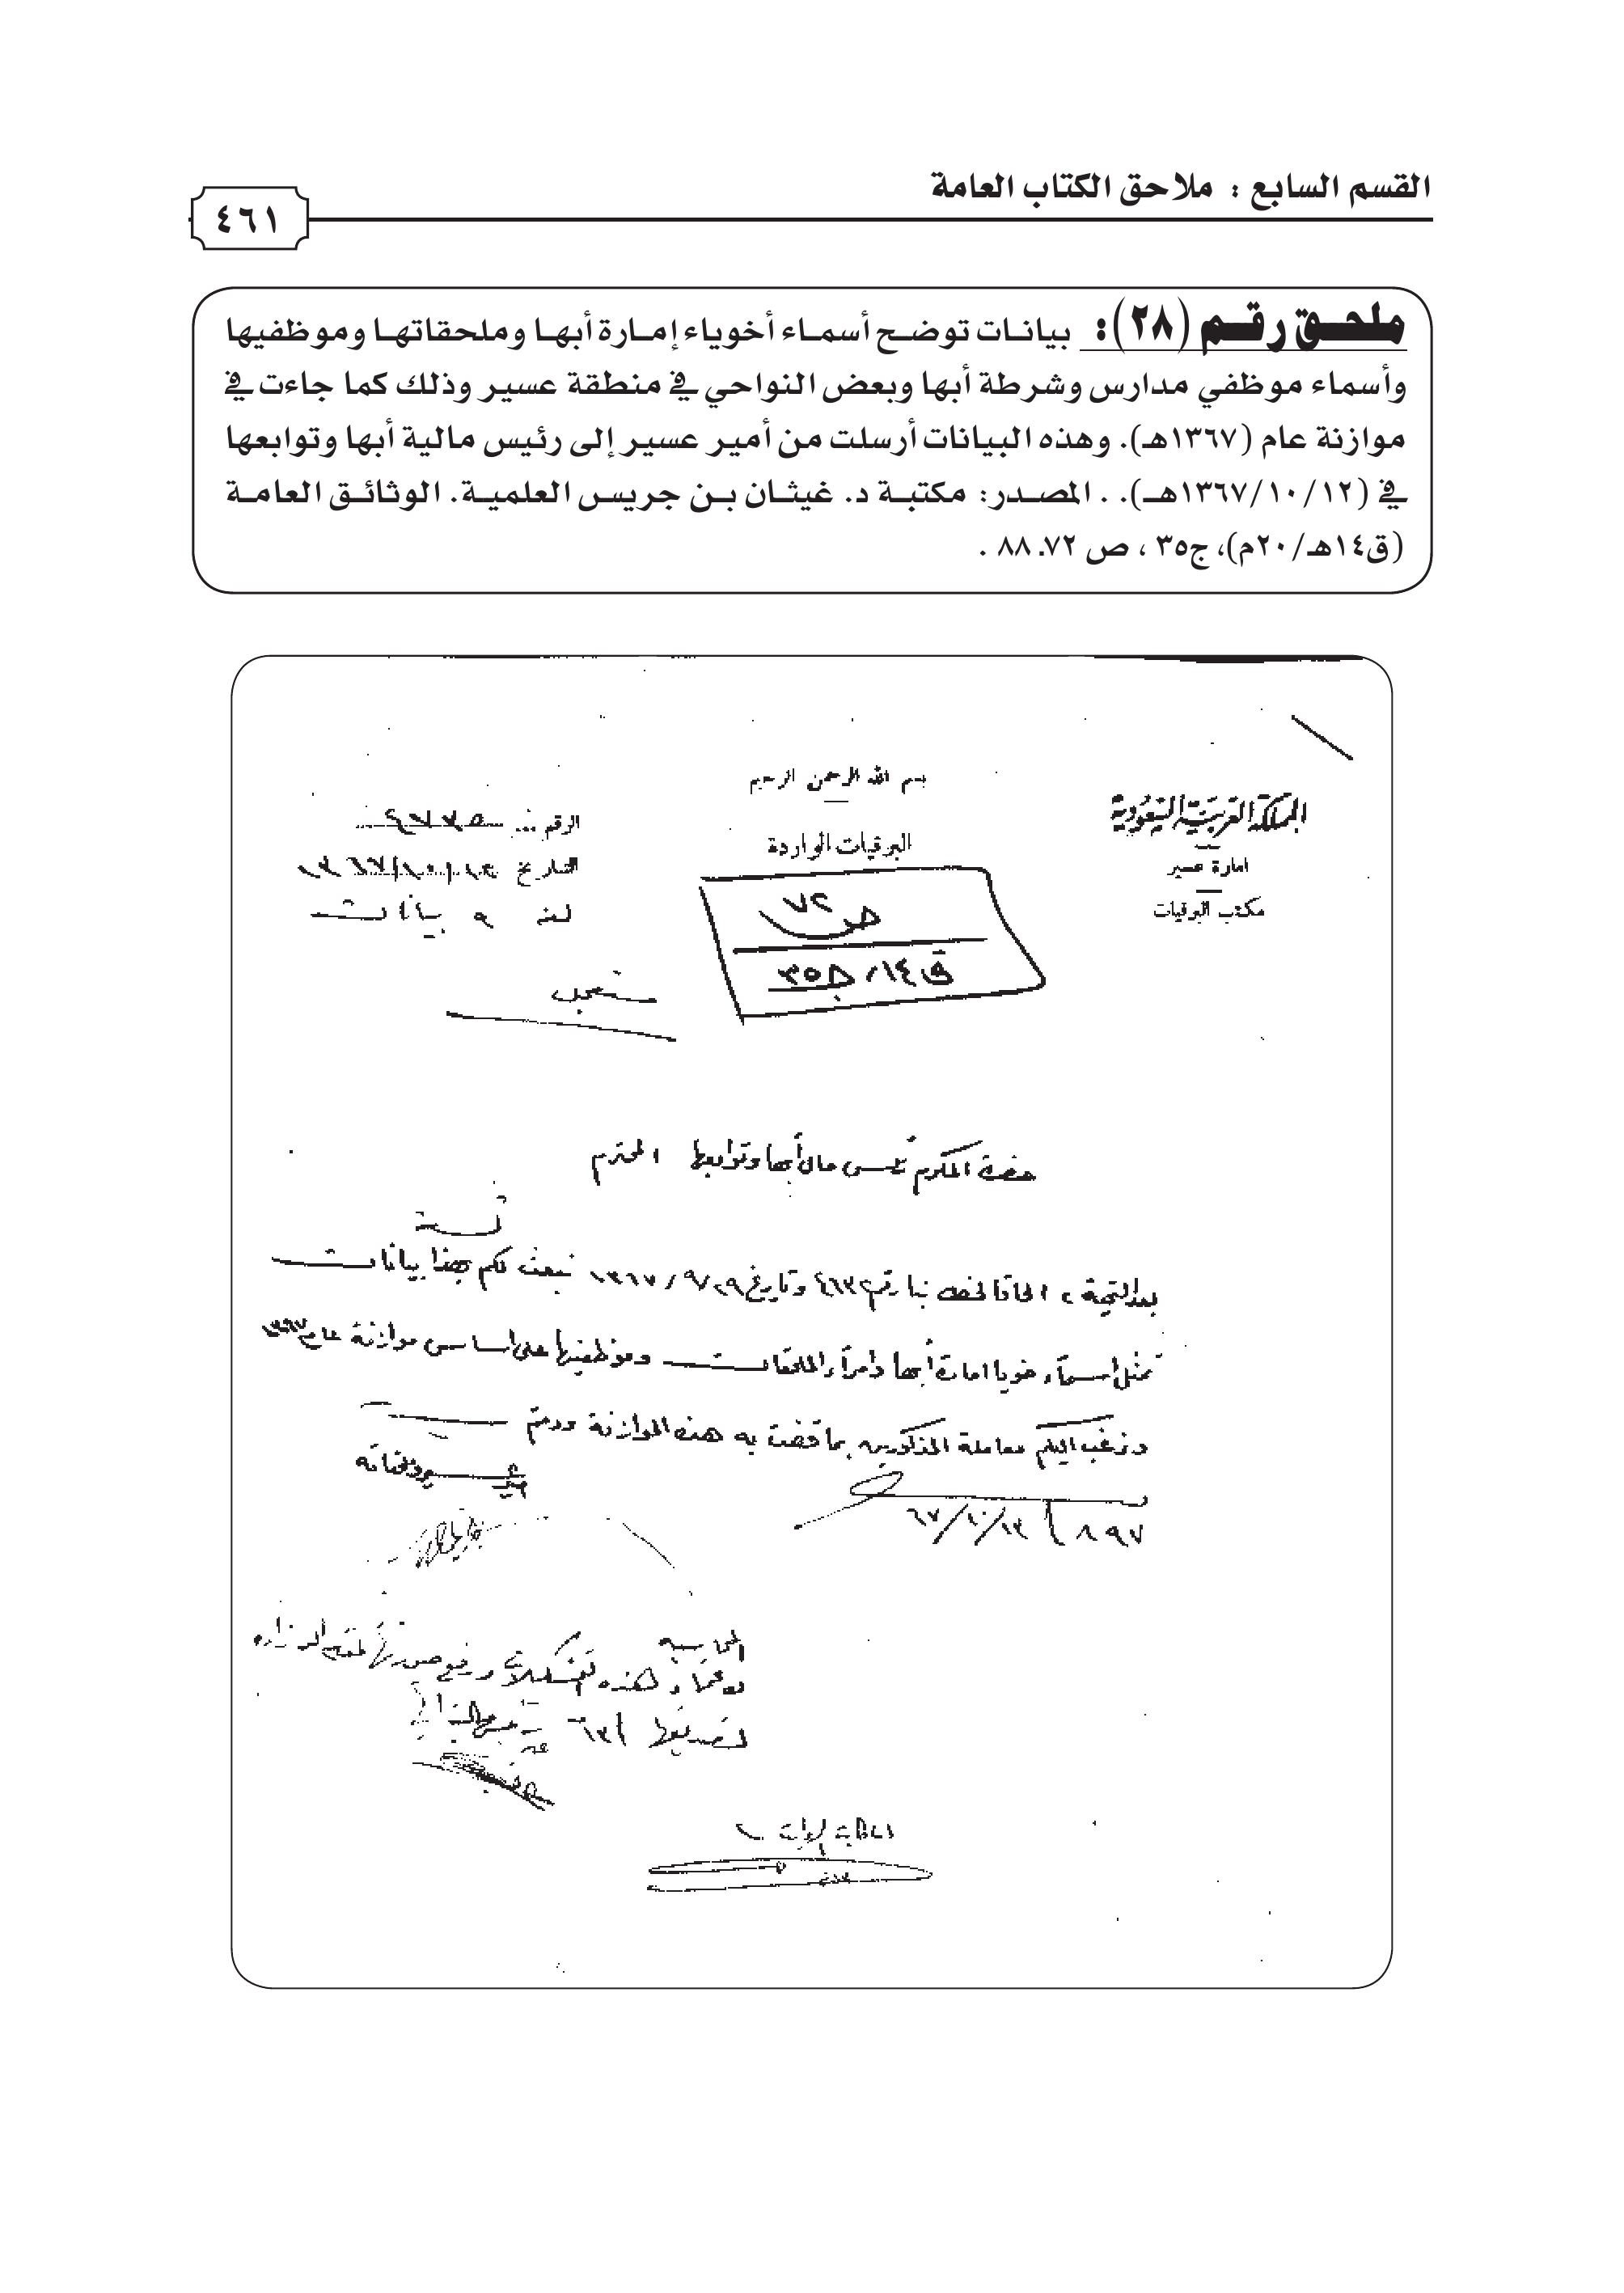 القسم السابع : ملاحق الكتاب العامة
٤٦١
ملحق رقم (٢٨): بيانات توضح أسماء أخوياء إمارة أبها وملحقاتها وموظفيها
وأسماء موظفي مدارس وشرطة أبها وبعض النواحي في منطقة عسير وذلك كما جاءت في
موازنة عام (١٣٦٧هـ). وهذه البيانات أرسلت من أمير عسير إلى رئيس مالية أبها وتوابعها
في (١٣٦٧/١٠/١٢هـ). . المصدر: مكتبة د. غيثان بن جريس العلمية. الوثائق العامة
(ق١٤هـ/٢٠م)، ج٣٥ ، ص ٧٢. ٨٨ .
المملكة العربية السعودية
امارة عسير
مكتب البرقيات
بسم الله الرحمن الرحيم
البرقيات الواردة
ص ٧٢
ق١٤/ ج٣٥
الرقم ...
التاريخ
لفه ٩ بيانات
مستعجل
حضرة المكرم رئيس مال أبها وتوابعها المحترم
بعد التحية ، الحاقا لخطابنا رقم وتاريخ ١٣٦٧/٩/٢٩ نبعث لكم بهذا بيانات
تمثل اسماء خويا امارة أبها وامراء الملحقات وموظفيها على اساس موازنة عام ١٣٦٧
ونرغب اليكم معاملة المذكورين بما قضت به هذه الموازنة ودمتم
٨٩٧ ٦٧/١٠/١٣
المحاسبه